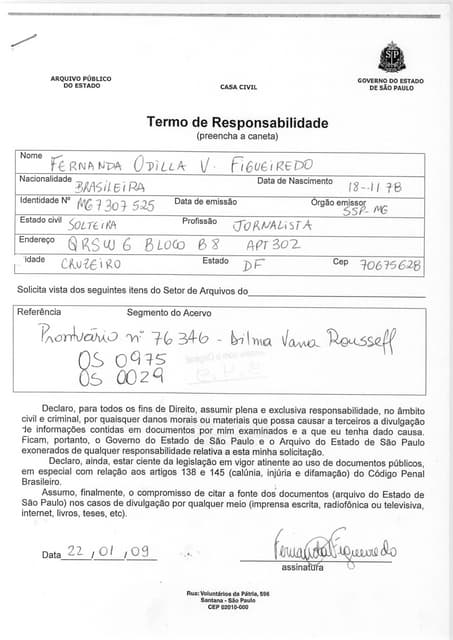 ARQUIVO PÚBLICO
DO ESTADO
CASA CIVIL
GOVERNO DO ESTADO
DE SÃO PAULO
Termo de Responsabilidade
(preencha a caneta)
Nome FERNANDA ODILLA V. FIGUEIREDO
Nacionalidade BRASILEIRA Data de Nascimento 18-11 78
Identidade Nº MG7307525 Data de emissão Órgão emissor SSP-MG
Estado civil SOLTEIRA Profissão JORNALISTA
Endereço QRSW 6 BLOCO B8 APT 302
idade CRUZEIRO Estado DF Cep 70675628
Solicita vista dos seguintes itens do Setor de Arquivos do
Referência Segmento do Acervo
Prontuário nº 76346 - Dilma Vana Rousseff
OS 0975
OS 0029
Declaro, para todos os fins de Direito, assumir plena e exclusiva responsabilidade, no âmbito
civil e criminal, por quaisquer danos morais ou materiais que possa causar a terceiros a divulgação
de informações contidas em documentos por mim examinados e a que eu tenha dado causa.
Ficam, portanto, o Governo do Estado de São Paulo e o Arquivo do Estado de São Paulo
exonerados de qualquer responsabilidade relativa a esta minha solicitação.
Declaro, ainda, estar ciente da legislação em vigor atinente ao uso de documentos públicos,
em especial com relação aos artigos 138 e 145 (calúnia, injúria e difamação) do Código Penal
Brasileiro.
Assumo, finalmente, o compromisso de citar a fonte dos documentos (arquivo do Estado de
São Paulo) nos casos de divulgação por qualquer meio (imprensa escrita, radiofônica ou televisiva,
internet, livros, teses, etc).
Data 22 / 01 / 09 Fernanda Figueiredo
assinatura
Rua: Voluntários da Pátria, 596
Santana - São Paulo
CEP 02010-000